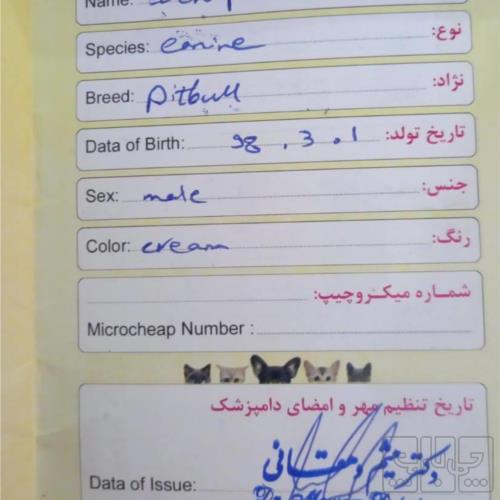 Name:
نوع:
Species: canine
نژاد:
Breed: Pitbull
تاریخ تولد:
Data of Birth: 98 . 3 . 1
جنس:
Sex: male
رنگ:
Color: cream
شماره میکروچیپ:
Microcheap Number :
تاریخ تنظیم مهر و امضای دامپزشک
دکتر میثم
Date of Issue: